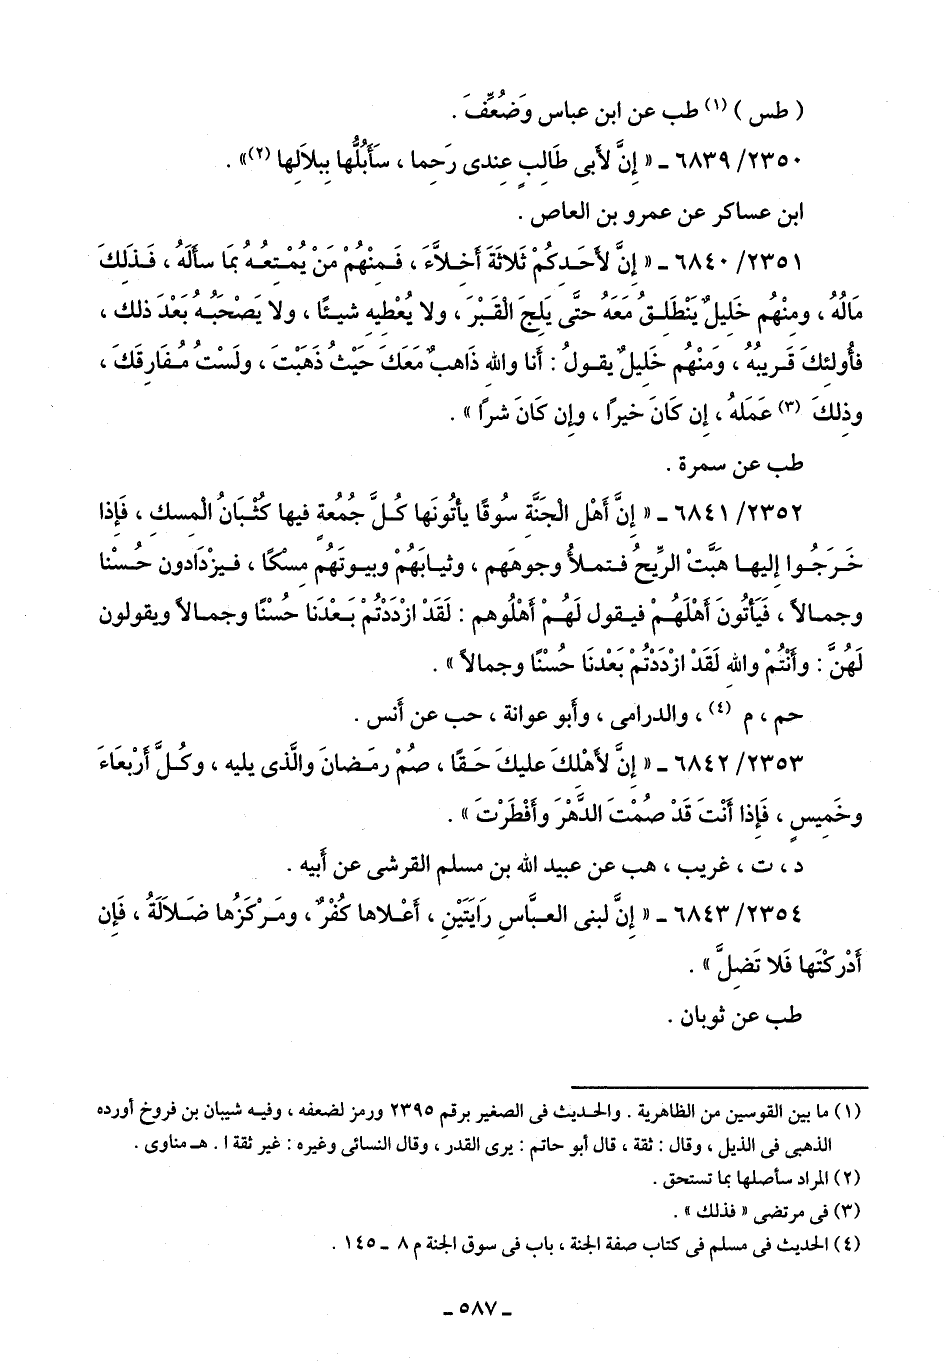 ( طس ) (١) طب عن ابن عباس وَضُعِّفَ .
٦٨٣٩/٢٣٥٠ ـ « إِنَّ لأَبِى طَالِبٍ عِندى رَحِما ، سَأَبُلُّها بِبلاَلِها (٢)» .
ابن عساكر عن عمرو بن العاص .
٦٨٤٠/٢٣٥١ ـ « إِنَّ لأَحَدِكُمْ ثَلاثَةَ أَخِلاَّءَ ، فَمِنْهُمْ مَنْ يُمْتِعُهُ بمَا سأَلَهُ ، فَذلِكَ
مَالُهُ ، ومِنْهُم خَلِيلٌ يَنْطَلِقُ مَعَهُ حتَّى يَلِجَ الْقَبْرَ ، ولا يُعْطِيهِ شيئًا ، ولا يَصْحَبُهُ بَعْدَ ذلك ،
فأُولئِكَ قَرِيبُهُ ، وَمنْهُم خَلِيلٌ يقولُ : أنا واللهِ ذَاهبٌ مَعَكَ حَيْثُ ذَهَبْتَ ، ولَسْتُ مُفَارِقَكَ ،
وذلِكَ (٣) عَمَلهُ ، إِن كَانَ خيرًا ، وإِن كَانَ شرًا » .
طب عن سمرة .
٦٨٤١/٢٣٥٢ ـ « إِنَّ أَهْلِ الْجَنَّةِ سُوقًا يأْتُونَها كُلَّ جُمُعةٍ فيها كُثْبَانُ الْمِسك ، فَإِذا
خَرَجُوا إِليها هَبَّت الرِّيحُ فتملأُ وجوهَهم ، وثيابَهُمْ وبيوتَهُم مِسْكًا ، فيزْدَادون حُسْنا
وجمالاً ، فَيَأْتُونَ أَهْلَهُمْ فيقول لَهُمْ أهْلُوهم : لَقَدْ ازْدَدْتُمْ بَعْدَنَا حُسْنًا وجمالاً ويقولون
لَهُنَّ : وأَنْتُمْ واللهِ لَقَدْ ازْدَدْتُمْ بَعْدَنَا حُسْنًا وجمالاً » .
حم ، م (٤) ، والدرامى ، وأبو عوانة ، حب عن أَنس .
٦٨٤٢/٢٣٥٣ ـ « إِنَّ لأَهْلِكَ عليكَ حَقًا ، صُمْ رمَضانَ والَّذى يليه ، وكُلَّ أَرْبعَاءَ
وخَمِيسٍ ، فَإِذا أَنْتَ قَدْ صُمْتَ الدَّهْرَ وأَفْطَرْتَ » .
د ، ت ، غريب ، هب عن عبيد الله بن مسلم القرشى عن أَبيه .
٦٨٤٣/٢٣٥٤ ـ « إِنَّ لبنى العبَّاسِ رَايَتَيْنِ ، أَعْلاها كُفْرٌ ، ومَرْكَزُها ضَلاَلَةُ ، فَإِن
أَدْركْتَها فَلا تَضِلَّ » .
طب عن ثوبان .
(١) ما بين القوسين من الظاهرية . والحديث فى الصغير برقم ٢٣٩٥ ورمز لضعفه ، وفيه شيبان بن فروخ أورده
الذهبى فى الذيل ، وقال : ثقة ، قال أبو حاتم : يرى القدر ، وقال النسائى وغيره : غير ثقة ا . هـ مناوى .
(٢) المراد سأصلها بما تستحق .
(٣) فى مرتضى « فذلك » .
(٤) الحديث فى مسلم فى كتاب صفة الجنة ، باب فى سوق الجنة م ٨ ـ ١٤٥ .
ـ ٥٨٧ ـ